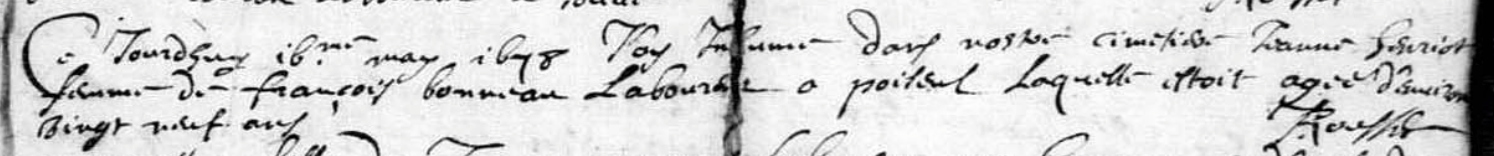 Ce Jourdhuy ib.me may ib78 J'ay Inhumé dans nostre cimetiere Jeanne henriot
femme de françois bonneau Laboureur a poiseul Laquelle estoit agée d'environ
vingt neuf ans
Rousselet